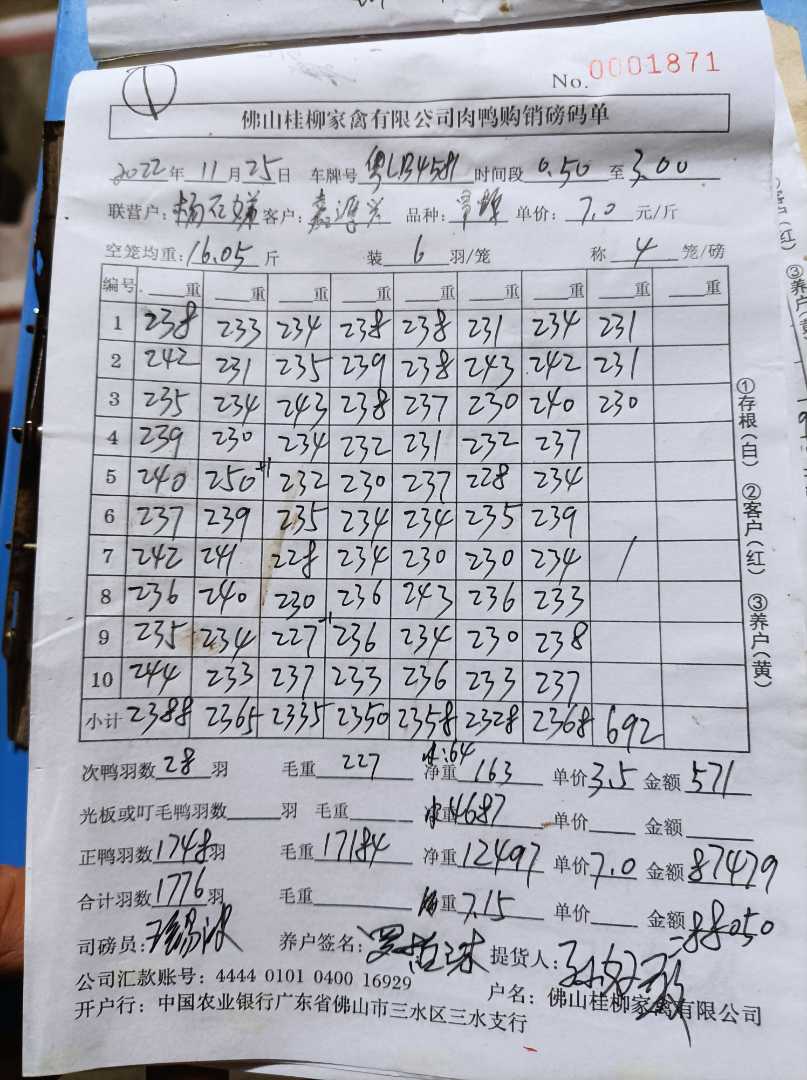 ①
No. 0001871
佛山桂柳家禽有限公司肉鸭购销磅码单
2022年 11月25日 车牌号 粤LB4581 时间段 0.50 至 3.00
联营户: 客户: 品种: 单价: 7.0 元/斤
空笼均重: 16.05 斤 装 6 羽/笼 称 4 笼/磅
编号 重 重 重 重 重 重 重 重 重
1 238 233 234 238 238 231 234 231
2 242 231 235 239 238 243 242 231
3 235 234 243 238 237 230 240 230
4 239 230 234 232 231 232 237
5 240 250 +1 232 230 237 228 234
6 237 239 235 234 234 235 239
7 242 241 228 234 230 230 234 /
8 236 240 230 236 243 236 233
9 235 234 227 -1 236 234 230 238
10 244 233 237 233 236 233 237
小计 2388 2365 2335 2350 2358 2328 2368 692
次鸭羽数 28 羽 毛重 227 :64 净重 163 单价 3.5 金额 571
光板或叮毛鸭羽数 羽 毛重 4687 单价 金额
正鸭羽数 1748 羽 毛重 17184 净重 12497 单价 7.0 金额 87479
合计羽数 1776 羽 毛重 重 7.15 单价 金额 88050
司磅员: 养户签名: 提货人:
公司汇款账号: 4444 0101 0400 16929 户名: 佛山桂柳家禽有限公司
开户行: 中国农业银行广东省佛山市三水区三水支行
①存根(白) ②客户(红) ③养户(黄)